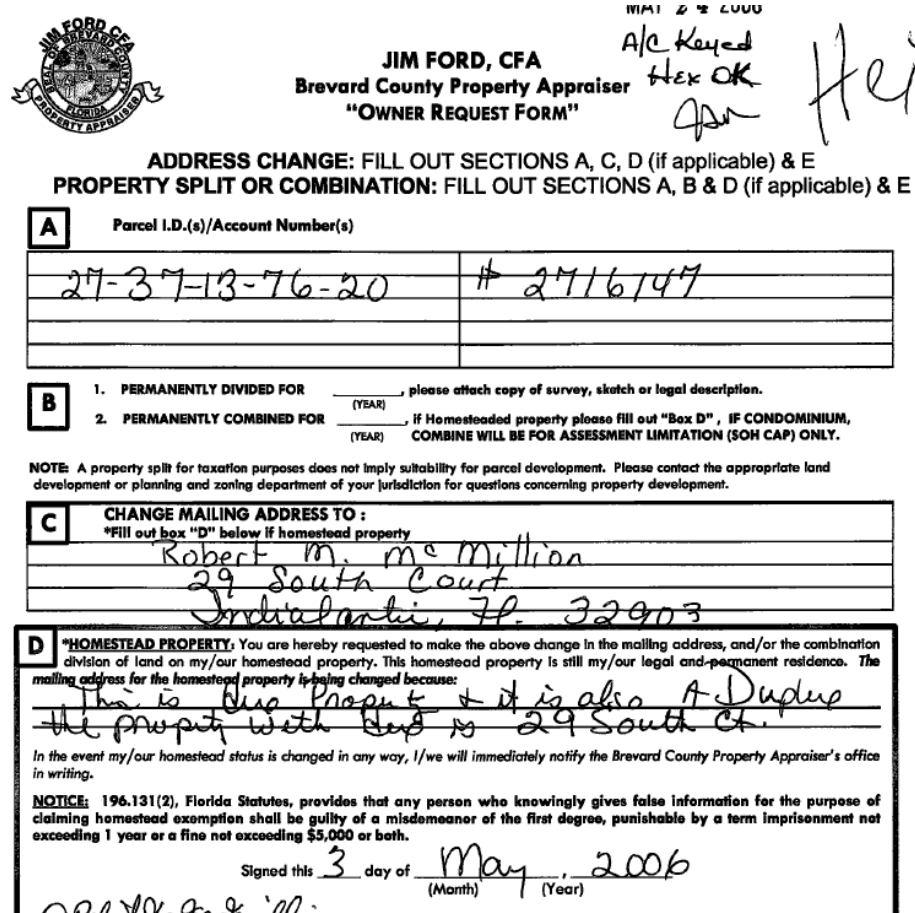 MAY 24 2006
A/C Keyed
Hex OK
JIM FORD, CFA
SEAL OF BREVARD COUNTY
FLORIDA
PROPERTY APPRAISER
JIM FORD, CFA
Brevard County Property Appraiser
“OWNER REQUEST FORM”
ADDRESS CHANGE: FILL OUT SECTIONS A, C, D (if applicable) & E
PROPERTY SPLIT OR COMBINATION: FILL OUT SECTIONS A, B & D (if applicable) & E
A Parcel I.D.(s)/Account Number(s)
27-37-13-76-20 # 2716147
B 1. PERMANENTLY DIVIDED FOR ______, please attach copy of survey, sketch or legal description.
(YEAR)
2. PERMANENTLY COMBINED FOR ______, if Homesteaded property please fill out “Box D” , IF CONDOMINIUM,
(YEAR) COMBINE WILL BE FOR ASSESSMENT LIMITATION (SOH CAP) ONLY.
NOTE: A property split for taxation purposes does not imply suitability for parcel development. Please contact the appropriate land
development or planning and zoning department of your jurisdiction for questions concerning property development.
C CHANGE MAILING ADDRESS TO :
*Fill out box “D” below if homestead property
Robert M. McMillion
29 South Court
Indialantic, Fl. 32903
D *HOMESTEAD PROPERTY: You are hereby requested to make the above change in the mailing address, and/or the combination
division of land on my/our homestead property. This homestead property is still my/our legal and permanent residence. The
mailing address for the homestead property is being changed because:
This is & it is also A
the with is 29 South Ct.
In the event my/our homestead status is changed in any way, I/we will immediately notify the Brevard County Property Appraiser’s office
in writing.
NOTICE: 196.131(2), Florida Statutes, provides that any person who knowingly gives false information for the purpose of
claiming homestead exemption shall be guilty of a misdemeanor of the first degree, punishable by a term imprisonment not
exceeding 1 year or a fine not exceeding $5,000 or both.
Signed this 3 day of May, 2006
(Month) (Year)